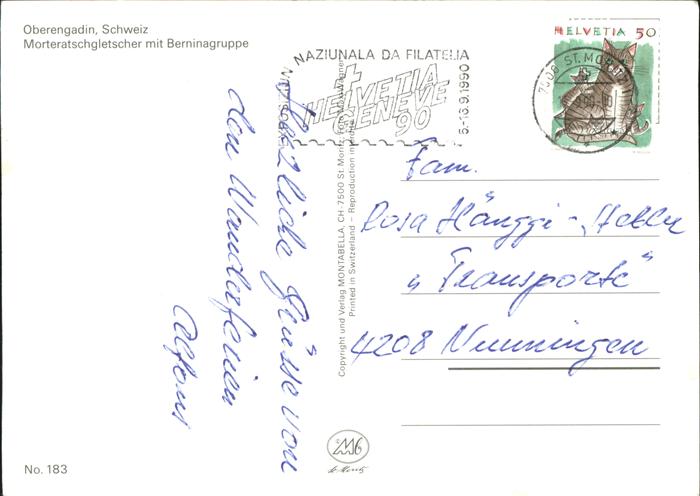 Oberengadin, Schweiz
Morteratschgletscher mit Berninagruppe
NAZIUNALA DA FILATELIA
HELVETIA
GENÈVE
90
5-16.9.1990
HELVETIA 50
7500 ST. MORITZ
Herzliche Grüsse von
den Wanderferien
Alfons
Copyright und Verlag MONTABELLA, CH-7500 St. Moritz
Printed in Switzerland – Reproduction interdite
Fam.
Rosa Hänggi-Heller
"Transporte"
4208 Nunningen
No. 183
St. Moritz